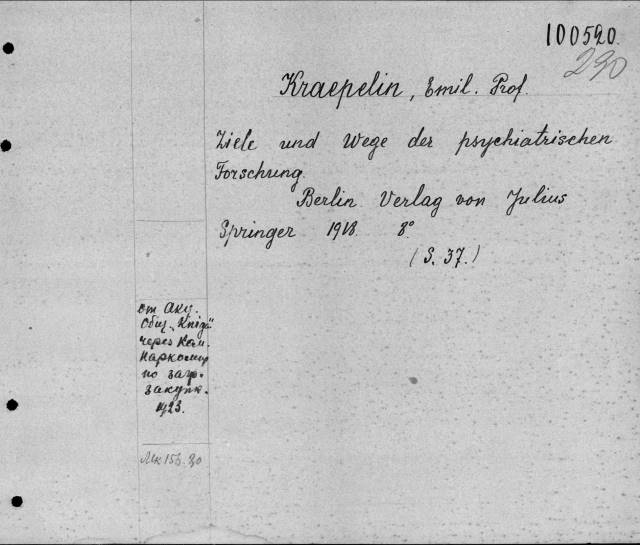 100520.
290
Kraepelin, Emil. Prof.
Ziele und Wege der psychiatrischen
Forschung.
Berlin. Verlag von Julius
Springer 1918. 8°
(S. 37.)
от Акц.
Общ. „Kniga"
через Ком.
по загр.
закупк.
1923.